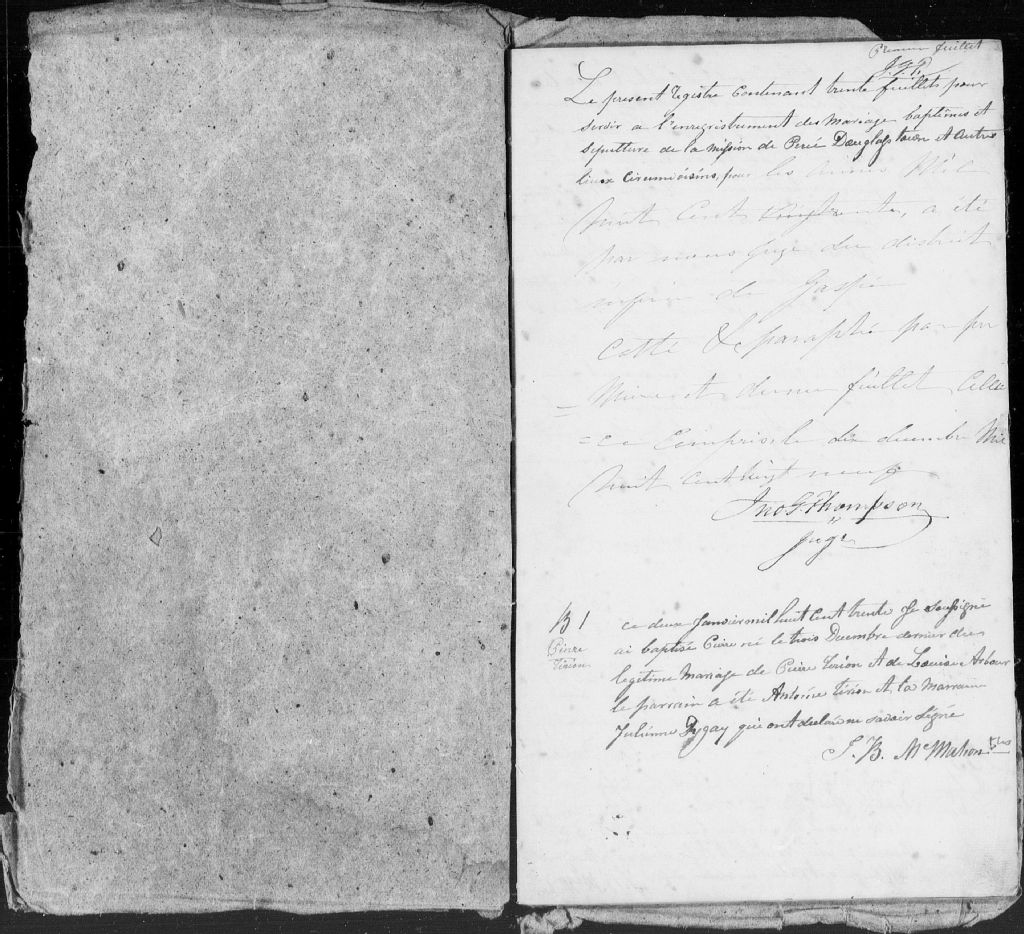 Premier feuillet
J.G.T.
Le present registre Contenant trente feuillets pour
servir a l'enregistrement des Mariage baptêmes et
sepulture de la mission de Percé Douglass town et autres
lieux circumvoisins, pour les années Mil
huit Cent trente, a été
par nous juge du district
inferieur de Gaspé
Cotté & paraphé par pre
= miere et dernier feuillet Celle
= ce Compris le dix decembre Mil
huit cent vingt neuf
Jno G. Thompson
Juge
B 1
Pierre
Tirion
ce deux Janvier mil huit Cent trente Je soussigné
ai baptisé Pierre né le trois Decembre dernier du
legitime Mariage de Pierre tirion et de Louise Arbour
le parrain a été Antoine tirion et la Marraine
Julienne qui ont declaré ne savoir signé
J. B. McMahon Ptre